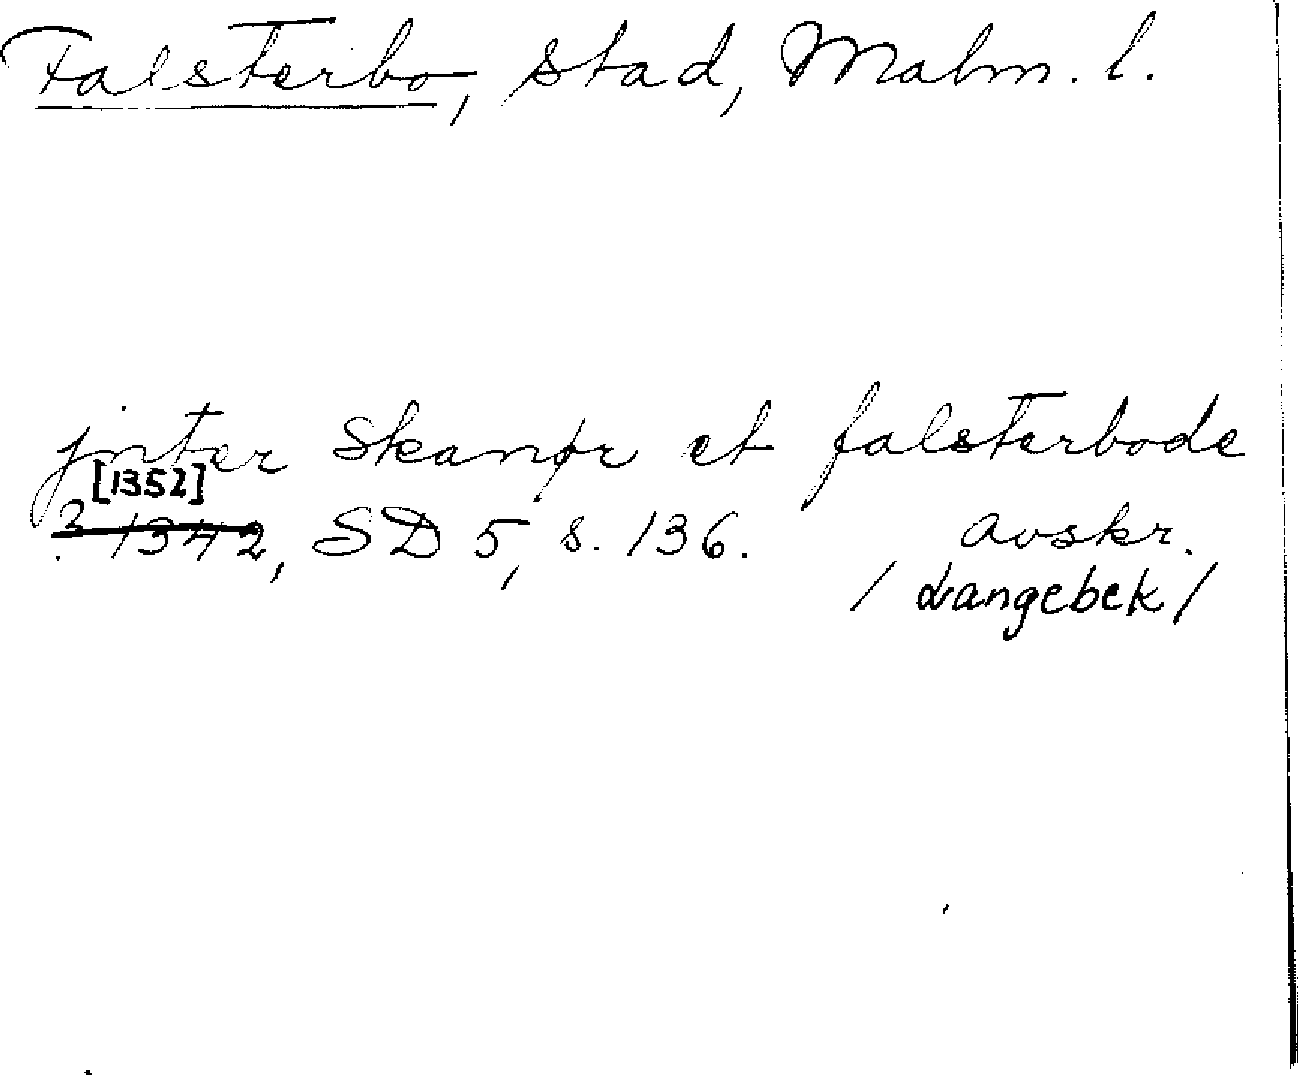 Falsterbo, stad, Malm. l.
jnter Skanør et falsterbode
[1352]
? 1342, SD 5, s. 136. avskr.
/ Langebek /